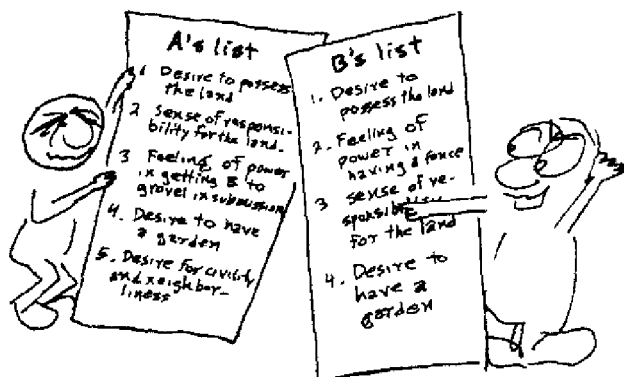 A's list
1 Desire to possess
the land
2 Sense of responsi-
bility for the land.
3 Feeling of power
in getting B to
grovel in submission
4. Desire to have
a garden
5. Desire for civility
and neighbor-
liness
B's list
1. Desire to
possess the land
2. Feeling of
power in
having a fence
3 sense of re-
sponsibi
for the land
4. Desire to
have a
garden